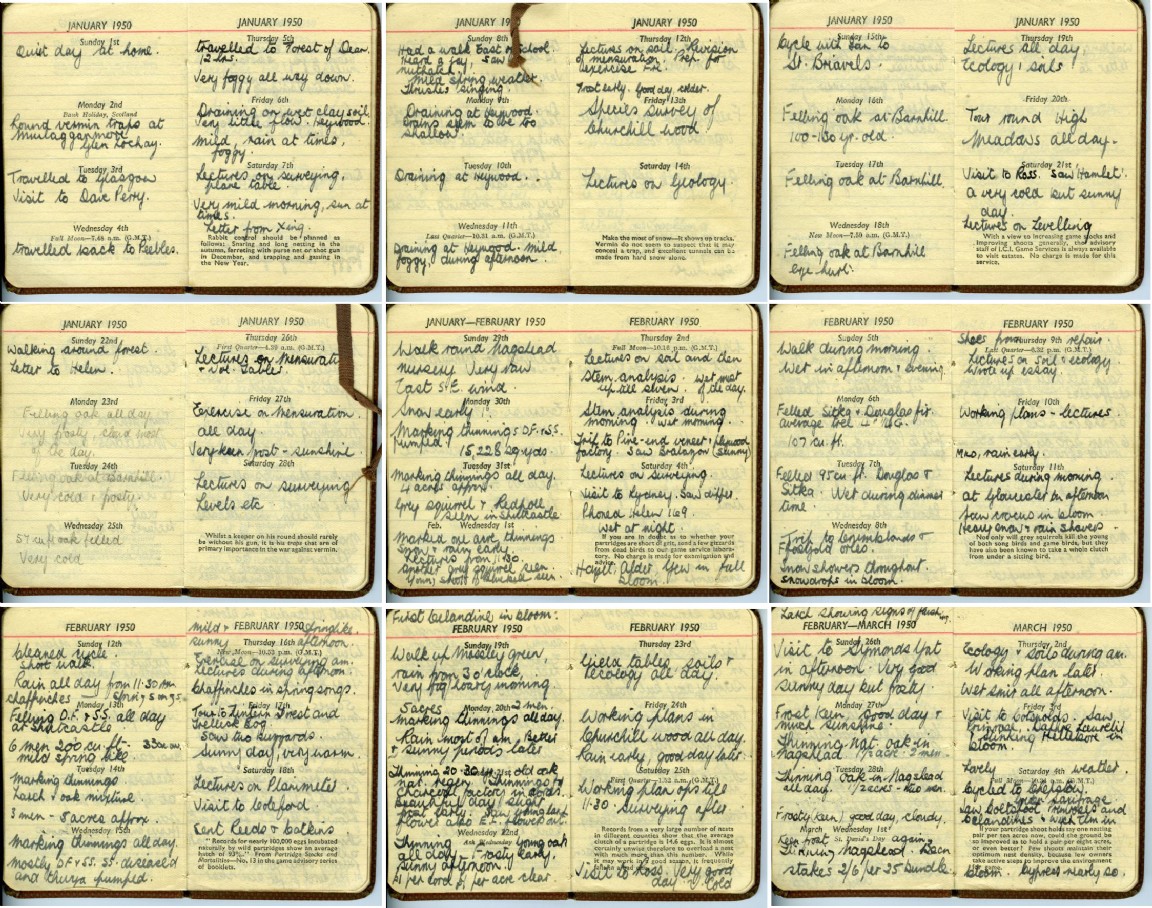 JANUARY 1950
Sunday 1st
Quiet day at home.
Monday 2nd
Bank Holiday, Scotland
Round vermin traps at
Glen Lochay.
Tuesday 3rd
Travelled to Glasgow
Visit to Dave Perry.
Wednesday 4th
Full Moon—7.48 a.m. (G.M.T.)
Travelled back to Peebles.
JANUARY 1950
Thursday 5th
travelled to Forest of Dean.
12 hrs.
Very foggy all way down.
Friday 6th
Draining on wet clay soil.
Very little flow. Heywood.
Mild, rain at times,
foggy.
Saturday 7th
Lectures on surveying,
plane table.
Very mild morning, sun at
times.
Letter from
Rabbit control should be planned as
follows: Snaring and long netting in the
autumn, ferreting with purse net or shot gun
in December, and trapping and gassing in
the New Year.
JANUARY 1950
Sunday 8th
Had a walk East of School.
Heard a jay, saw
nuthatch.
Mild spring weather.
Thrushes singing.
Monday 9th
Draining at Heywood
Drains seem to be too
shallow.
Tuesday 10th
Draining at Heywood.
Wednesday 11th
Last Quarter—10.31 a.m. (G.M.T.)
Draining at Heywood. Mild
foggy during afternoon.
Thursday 12th
Lectures on soil. Revision
of mensuration. Prep. for
exercise
Frost early. Good day colder.
Friday 13th
Species survey of
Churchill wood
Saturday 14th
Lectures on Geology.
Make the most of snow—it shows up tracks.
Vermin do not seem to suspect that it may
conceal a trap, and excellent tunnels can be
made from hard snow alone.
JANUARY 1950
Sunday 15th
Cycle with Ian to
St. Briavels.
Monday 16th
Felling oak at Barnhill
100-130 yr. old.
Tuesday 17th
Felling oak at Barnhill.
Wednesday 18th
New Moon—7.59 a.m. (G.M.T.)
Felling oak at Barnhill
eye hurt.
JANUARY 1950
Thursday 19th
Lectures all day
Ecology & soils
Friday 20th
Tour round High
Meadows all day.
Saturday 21st
Visit to Ross. Saw 'Hamlet'.
A very cold but sunny
day.
Lectures on Levelling
With a view to increasing game stocks and
improving shoots generally, the advisory
staff of I.C.I. Game Services is always available
to visit estates. No charge is made for this
service.
JANUARY 1950
Sunday 22nd
Walking around forest.
Letter to Helen.
Monday 23rd
Felling oak all day
Very frosty, cloud most
of the day.
Tuesday 24th
Felling oak at Barnhill.
Very cold & frosty.
Wednesday 25th
57 cu ft oak felled
Very cold
JANUARY 1950
Thursday 26th
First Quarter—4.39 a.m. (G.M.T.)
Lectures on Mensuration
& Vol. Tables.
Friday 27th
Exercise on mensuration.
all day.
Very keen frost - sunshine
Saturday 28th
Lectures on surveying
Levels etc
Whilst a keeper on his round should rarely
be without his gun, it is his traps that are of
primary importance in the war against vermin.
JANUARY—FEBRUARY 1950
Sunday 29th
Walk round Nagshead
nursery. Very raw
East S.E. wind.
Monday 30th
Snow early 1".
Marking thinnings D.F. & S.S.
pumped.
15,228 sq. yds.
Tuesday 31st
Marking thinnings all day.
4 acres approx.
Grey squirrel & Redpoll
seen in Shutcastle
Feb. Wednesday 1st
Marked one acre, thinnings
Snow & rain early.
Lectures from 11.30.
Another grey squirrel seen.
FEBRUARY 1950
Thursday 2nd
Full Moon—10.16 p.m. (G.M.T.)
Lectures on soil and then
Stem analysis. Wet most
up till seven. of the day.
Friday 3rd
Stem analysis during
morning. Wet morning.
Trip to Pine-end veneer & plywood
factory. Saw (sunny)
Saturday 4th
Lectures on surveying.
Visit to Lydney. Saw
Phoned Helen 169.
Wet at night.
If you are in doubt as to whether your
partridges are short of grit, send a few gizzards
from dead birds to our game service labora-
tory. No charge is made for examination and
advice.
Hazel, Alder, Yew in full
bloom.
FEBRUARY 1950
Sunday 5th
Walk during morning.
Wet in afternoon & evening.
Monday 6th
Felled Sitka & Douglas fir.
average
107 cu. ft.
Tuesday 7th
Felled 95 cu ft. Douglas &
Sitka. Wet during dinner
time.
Wednesday 8th
Trip to &
ores.
Snow showers throughout.
Snowdrops in bloom.
Shoes from repair.
Thursday 9th
Last Quarter—6.32 p.m. (G.M.T.)
Lectures on soil & ecology
Wrote up essay.
Friday 10th
Working plans - lectures.
Mild, rain early.
Saturday 11th
Lectures during morning.
at Gloucester in afternoon
Saw crocus in bloom.
Heavy snow & rain showers.
Not only will grey squirrels kill the young
of both song birds and game birds, but they
have also been known to take a whole clutch
from under a sitting bird.
FEBRUARY 1950
Sunday 12th
Cleaned cycle.
Short walk.
Rain all day from 11.30 am
chaffinches spring songs.
Monday 13th
Felling D.F. & S.S. all day
at Shutcastle
6 men 200 cu. ft.
mild spring like
Tuesday 14th
Marking thinnings
Larch & oak mixture.
3 men - 5 acres approx.
Wednesday 15th
Marking thinnings all day.
mostly D.F. & S.S. SS. diseased
and thuya pumped.
mild & springlike.
FEBRUARY 1950
sunny afternoon.
Thursday 16th
New Moon—10.53 p.m. (G.M.T.)
Exercise on surveying am.
Lectures during afternoon.
Chaffinches in spring songs.
Friday 17th
Tour to Tintern Forest and
Trelleck Bog.
Saw two buzzards.
Sunny day, very warm.
Saturday 18th
Lectures on Planimeter
Visit to Coleford
Sent Reeds & Catkins
Records for nearly 100,000 eggs incubated
naturally by wild partridges show an average
From "Partridge Stocks and
Mortalities"—No. 13 in the game advisory series
of booklets.
First Celandine in bloom.
FEBRUARY 1950
Sunday 19th
Walk up Mossley green,
rain from 3 o'clock,
Very fog/hoary morning
5 acres 2 men.
Monday 20th
Marking thinnings all day.
Rain most of am. Better
& sunny periods later
Thinning 20-30 yr old oak
Beautiful day, slight
Wednesday 22nd
Ash Wednesday
Thinning young oak
all day. Frosty early.
Sunny afternoon.
£1 per cord £1 per acre clear.
FEBRUARY 1950
Thursday 23rd
Yield tables, soils &
ecology all day.
Friday 24th
Working plans in
Churchill wood all day.
Rain early, good day later.
Saturday 25th
First Quarter—1.52 a.m. (G.M.T.)
Working plan ops till
11.30. Surveying after.
Records from a very large number of nests
in different counties show that the average
clutch of a partridge is 14.6 eggs. It is almost
certainly unwise therefore to overload a nest
with much more than this number. While
Visit to Ross. Very good
day. v. cold
Larch showing signs of flushing.
FEBRUARY—MARCH 1950
Sunday 26th
Visit to Symonds Yat
in afternoon. Very good
sunny day but frosty.
Monday 27th
Frost keen. Good day &
much sunshine.
Thinning nat. oak in
Nagshead 1/2 acre - 2 men.
Tuesday 28th
Thinning oak in Nagshead
all day. 1/2 acres - two men.
Frosty (keen) good day, cloudy.
March Wednesday 1st
St. David's Day
Keen frost again.
Thinning Nagshead. Bean
stakes 2/6 per 25 bundle.
MARCH 1950
Thursday 2nd
Ecology & soils during am.
Working plan later.
Wet smir all afternoon.
Friday 3rd
Visit to Cotswolds. Saw
Primrose, Daphne Laureola
Stinking Hellebore in
bloom.
Saturday 4th
Lovely weather.
Cycled to Chepstow.
Saw Coltsfoot Primroses and
Celandines &
If your partridge shoot holds say one nesting
pair per ten acres, could the ground be
so improved as to hold a pair per eight acres,
or even better? Few shoots maintain their
optimum nest density, because few owners
take active steps to improve the environment
bloom. Cypress nearly so.